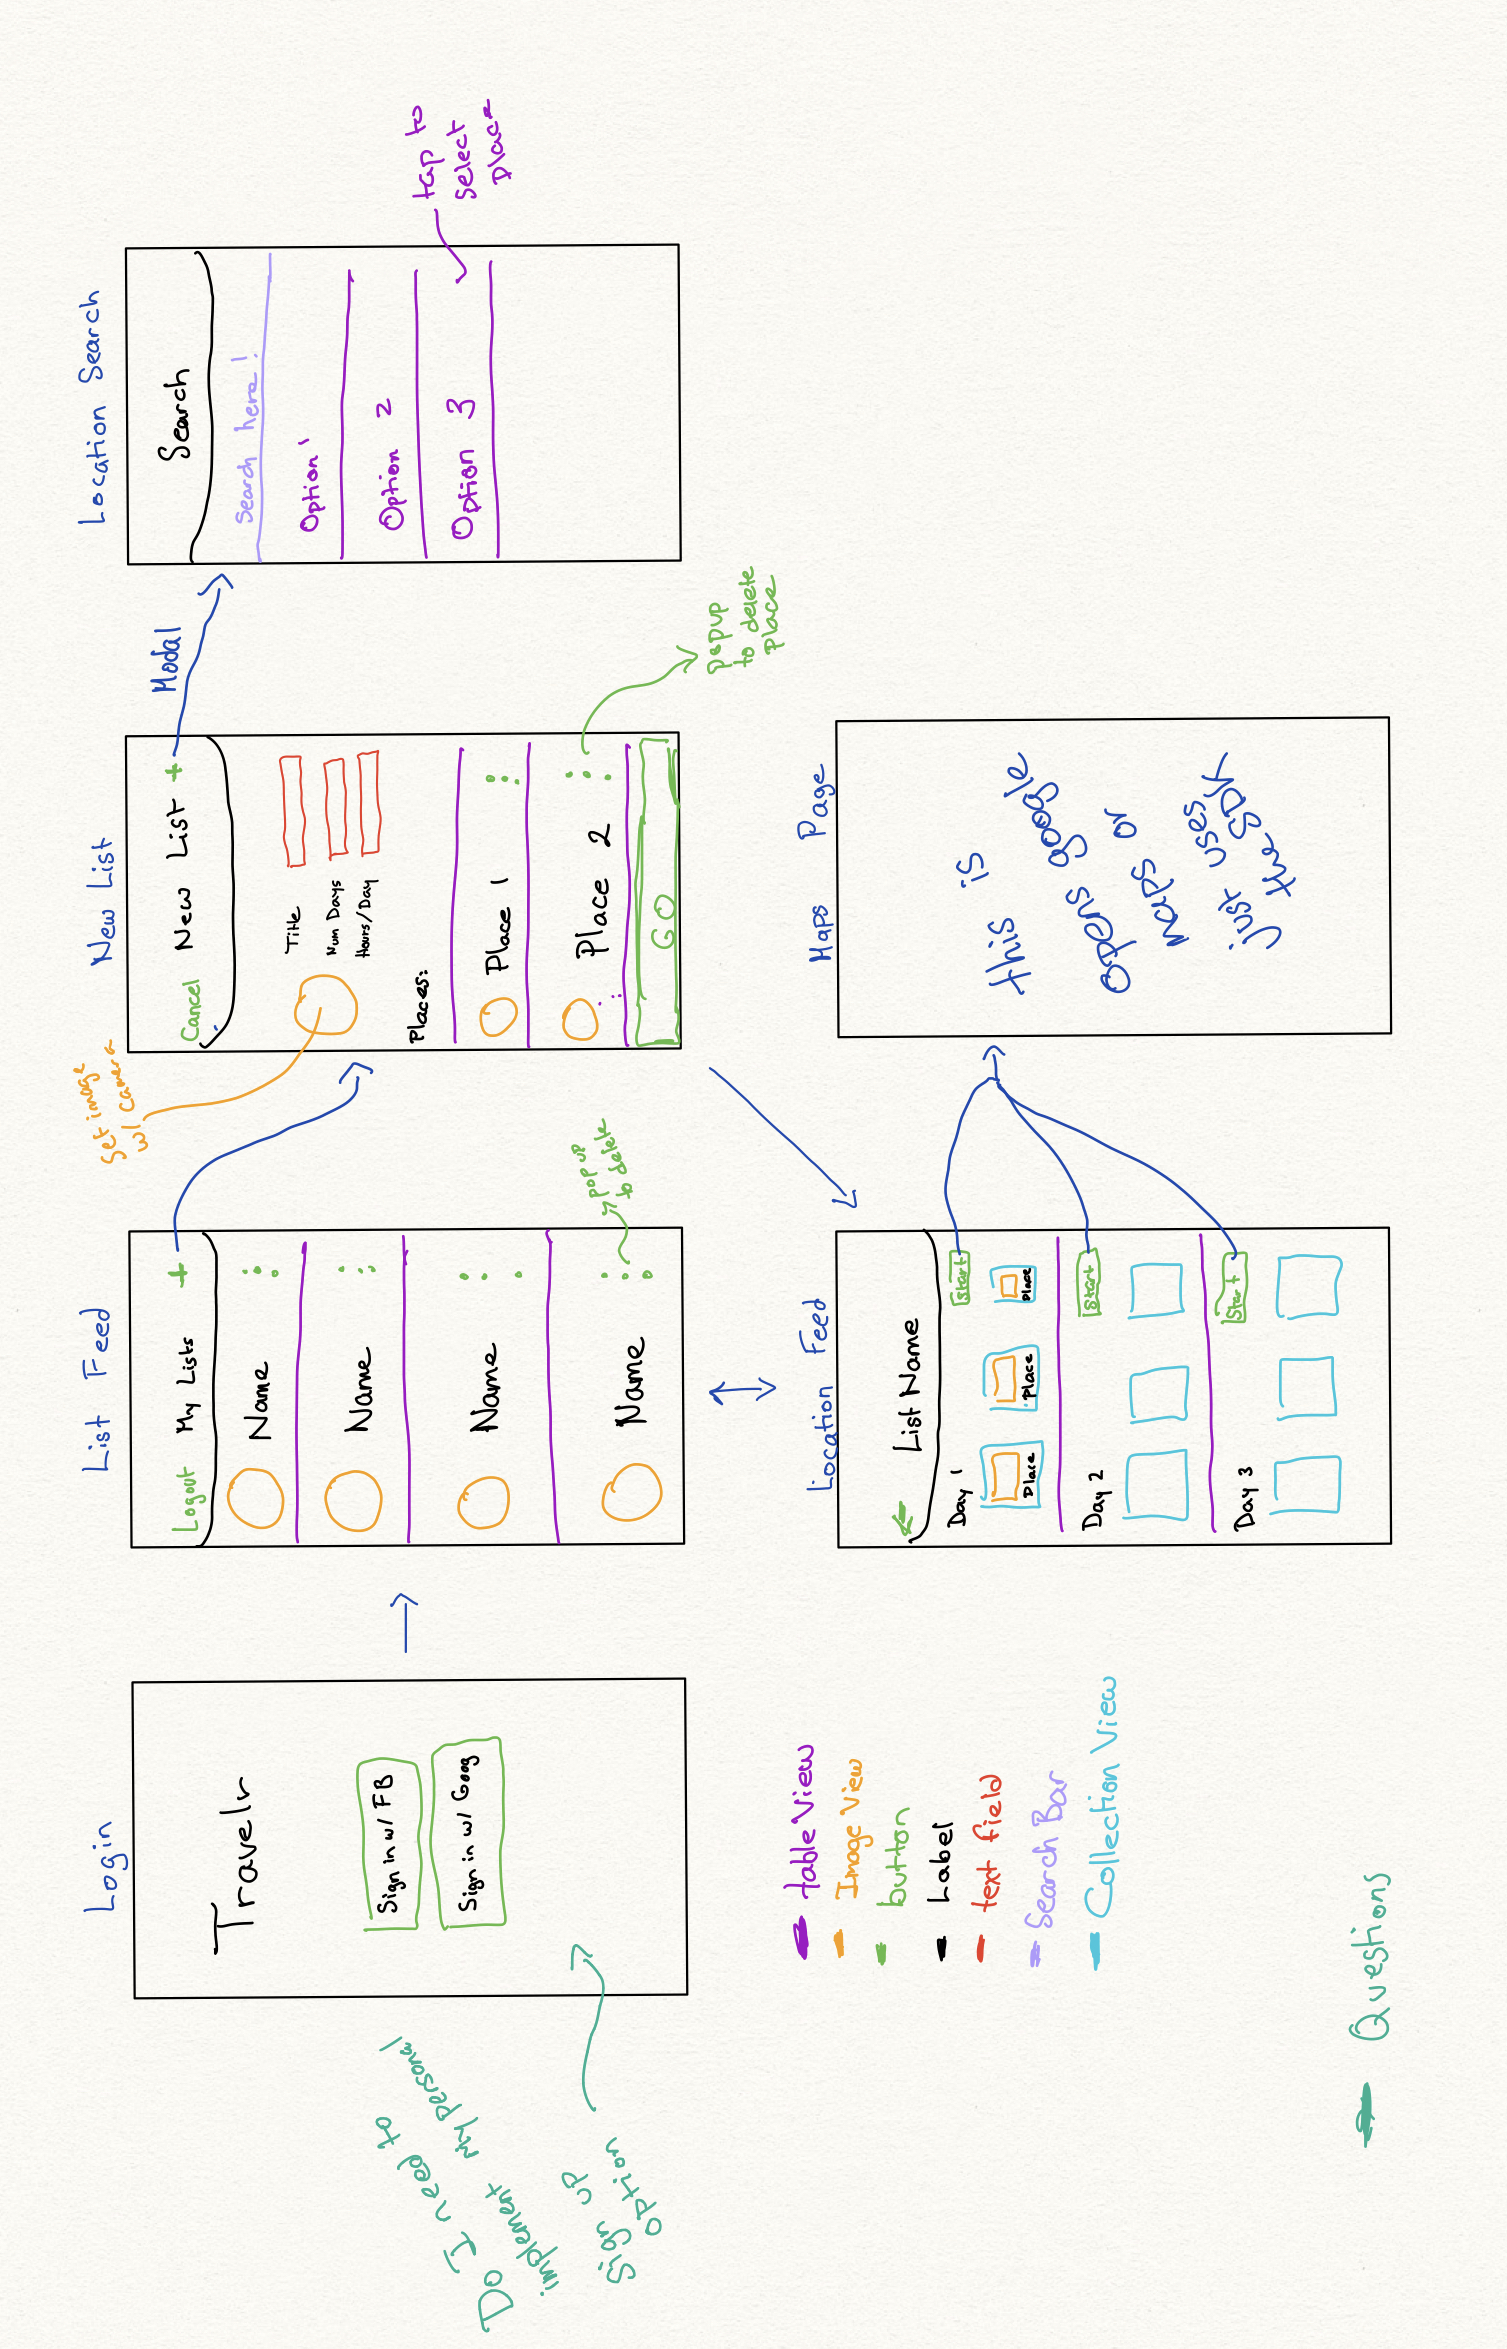 Login
Travelr
Sign in w/ FB
Sign in w/ Goog
Do I need to
implement my personal
Sign up
option
List Feed
Logout My Lists +
Name
Name
Name
Name
popup
to delete
Set image
w/ camera
New List
Cancel New List +
Title
Num Days
Hours/Day
Places:
Place 1
Place 2
GO
popup
to delete
place
Modal
Location Search
Search
Search here!
Option 1
Option 2
Option 3
tap to
select
place
table View
Image View
button
Label
text field
Search Bar
Collection View
Questions
Location Feed
List Name
Day 1 start
Place Place Place
Day 2 start
Day 3 start
Maps Page
this is
opens google
maps or
just uses
the SDK